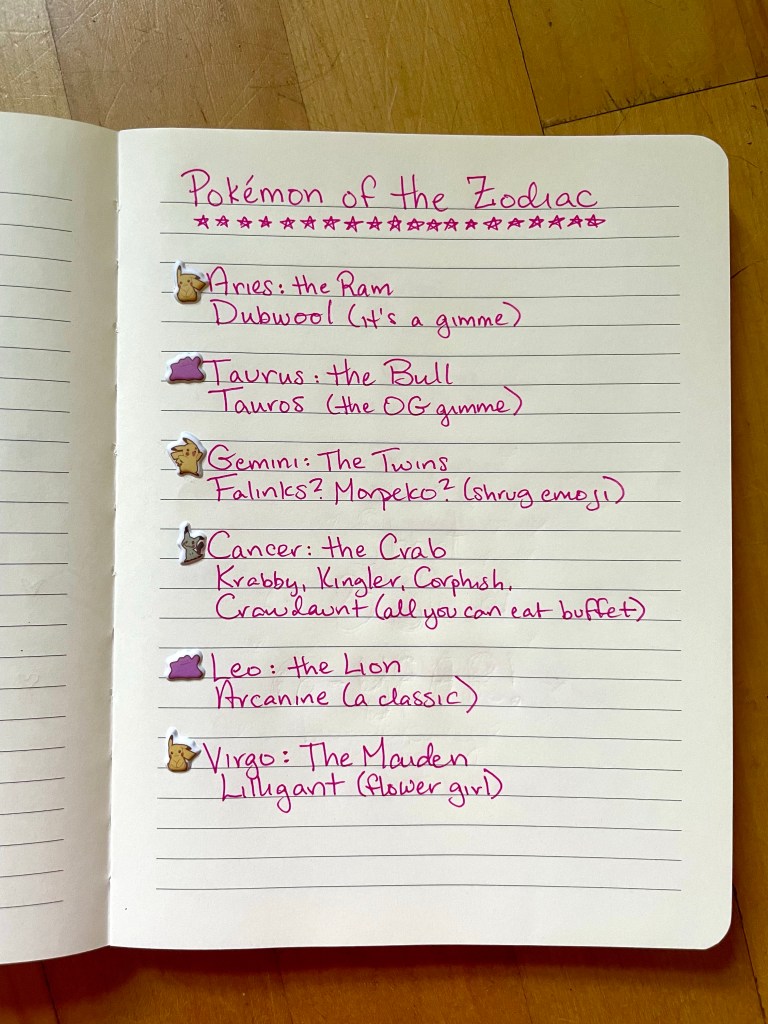 Pokémon of the Zodiac
☆☆☆☆☆☆☆☆☆☆☆☆☆☆☆☆☆☆☆☆
Aries: the Ram
Dubwool (it's a gimme)
Taurus: the Bull
Tauros (the OG gimme)
Gemini: The Twins
Falinks? Morpeko? (shrug emoji)
Cancer: the Crab
Krabby, Kingler, Corphish,
Crawdaunt (all you can eat buffet)
Leo: the Lion
Arcanine (a classic)
Virgo: The Maiden
Lilligant (flower girl)